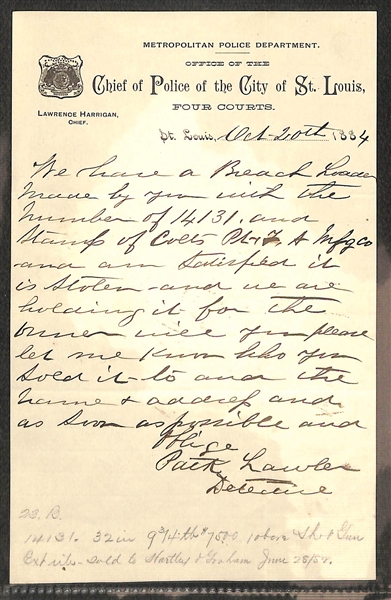 METROPOLITAN POLICE DEPARTMENT.
OFFICE OF THE
Chief of Police of the City of St. Louis,
FOUR COURTS.
LAWRENCE HARRIGAN,
CHIEF.
St. Louis, Oct 20th 1884
We have a Breach Loader
made by you with the
number of 14131. and
Stamp of Colts Pt F A Mfg co
and am Satisfied it
is Stolen and we are
holding it for the
owner will you please
let me know who you
Sold it to and the
name & address and
as soon as possible and
oblige
Patk Lawler
Detective
14131. 32 in 9 3/4 lb 10 bore Sh Gun
Ext rib - sold to Hartley & Graham June 25/84.